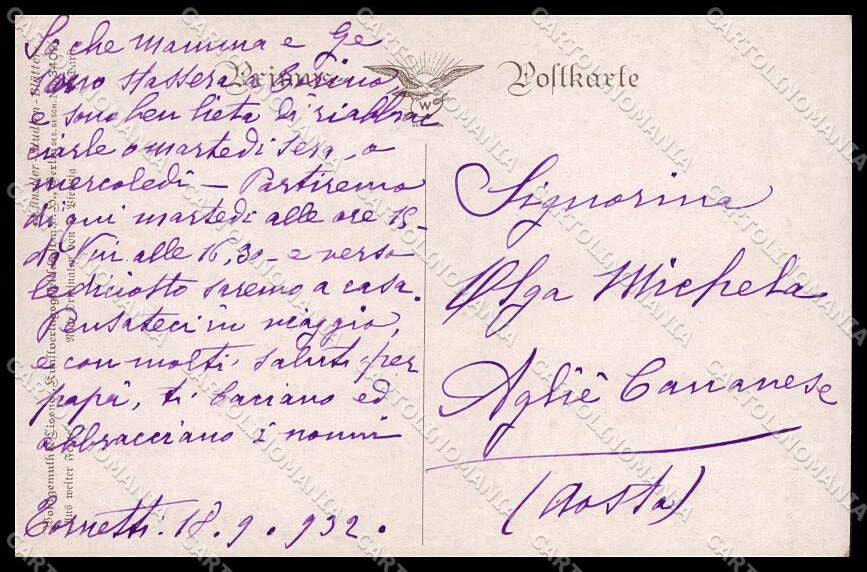 So che mamma e Ge
stassera a Torino
e sono ben lieta di riabbrac
ciarle o martedì sera, o
mercoledì – Partiremo
di qui martedì alle ore 15 –
da Viù alle 16,30 – e verso
le diciotto saremo a casa.
Pensateci in viaggio,
e con molti saluti per
papà, ti baciano ed
abbracciano i nonni
Tornetti. 18. 9. 932.
Primus Postkarte
W
Signorina
Olga Michela
Agliè Canavese
(Aosta)
CARTOLINOMANIA